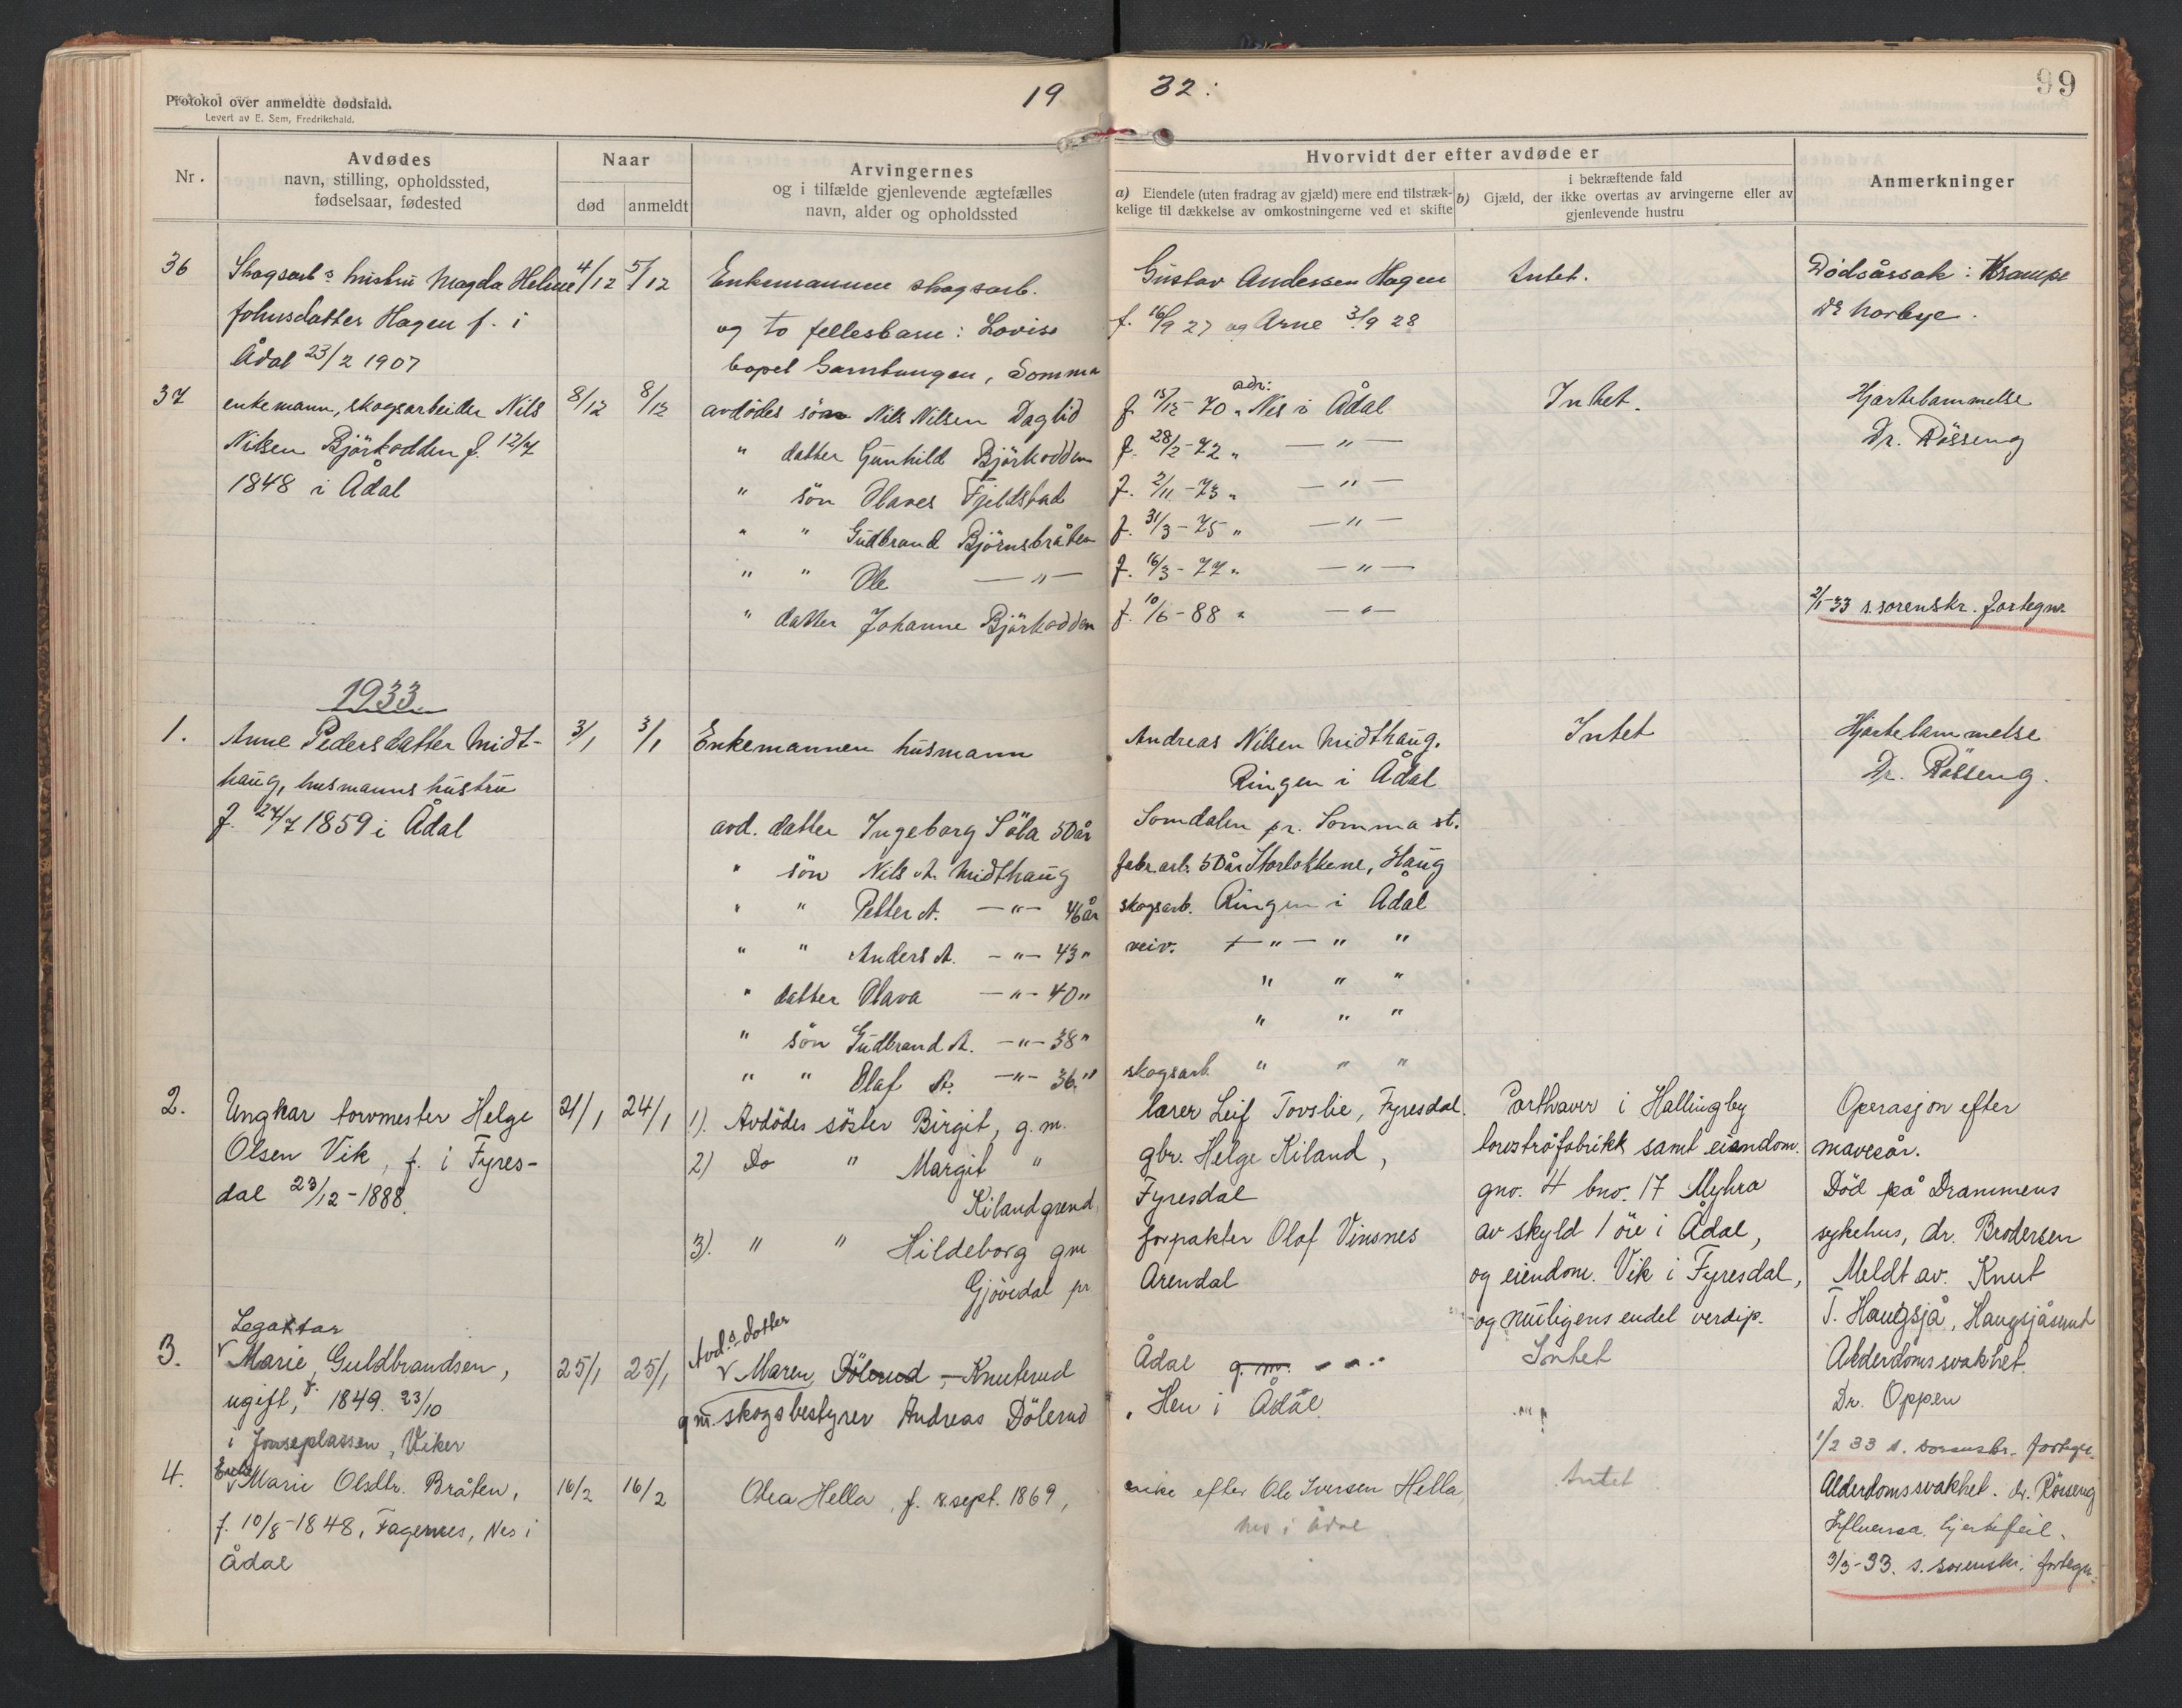 Protokol over anmeldte dødsfald.
Levert av E. Sem, Fredrikshald.
19 32:
99
Nr.
Avdødes
navn, stilling, opholdssted,
fødselsaar, fødested
Naar
død
anmeldt
Arvingernes
og i tilfælde gjenlevende ægtefælles
navn, alder og opholdssted
Hvorvidt der efter avdøde er
a) Eiendele (uten fradrag av gjæld) mere end tilstræk-
kelige til dækkelse av omkostningerne ved et skifte
i bekræftende fald
b) Gjæld, der ikke overtas av arvingerne eller av
gjenlevende hustru
Anmerkninger
36 Skogsarbs hustru Magda Helene 4/12 5/12 Enkemannen skogsarb. Gustav Andersen Hagen Intet. Dødsårsak: Krampe
Johnsdatter Hagen f. i og to fellesbarn: Lovise f. 16/9 27 og Arne 3/9 28 Dr Norbye.
Ådal 23/2 1907 bopel Somtangen, Somma
37 enkemann, skogsarbeider Nils 8/12 8/12 avdödes sön Nils Nilsen Daglid f. 15/12-70 " adr: Nes i Ådal Intet. Hjertelammelse
Nilsen Björkodden f. 12/7 " datter Gunhild Björkodden f. 28/2-72 " —"— Dr. Rösseng
1848 i Ådal " sön Olaves Fjeldstad f. 2/11-73 " —"—
" " Gudbrand Björnsbråten f. 31/3-75 " —"—
" " Ole —"— f. 16/3-77 " —"—
" datter Johanne Björkodden f. 10/6-88 " —"— 2/1-33 s. sorenskr. fortegn.
1933
1. Anne Pedersdatter Midt- 3/1 3/1 Enkemannen husmann Andreas Nilsen Midthaug. Intet Hjertelammelse
haug, husmanns hustru Ringen i Ådal Dr. Rösseng.
f. 24/7 1859 i Ådal avd. datter Ingeborg Söla 50 år Somdalen pr. Somma st.
" sön Nils A. Midthaug fabr.arb. 50 år Storlökkene, Haug
" " Petter A. —"— 46 år skogsarb. Ringen i Ådal
" " Anders A. —"— 43 " veiv. —"— " "
" datter Olava —"— 40 " " " "
" sön Gudbrand A. —"— 38 " " " "
" " Olaf A. —"— 36 " skogsarb. " " "
2. Ungkar torvmester Helge 21/1 24/1 1). Avdödes söster Birgit, g.m. lærer Leif Tovslie, Fyresdal. Parthaver i Hallingby Operasjon efter
Olsen Vik, f. i Fyres- 2) Do " Margit " gbr. Helge Kiland, torvströfabrikk samt eiendom. mavesår.
dal 23/12-1888. Kilandgrend, Fyresdal gno. 4 bno. 17 Myhra Död på Drammens
3). " " Hildeborg gm forpakter Olaf Vinsnes av skyld 1 öre i Ådal, sykehus, dr. Brodersen
Gjövdal pr Arendal og eiendom. Vik i Fyresdal, Meldt av. Knut
og muligens endel verdip. T. Haugsjå, Haugsjåsund
Legatar
3. v Marie Guldbrandsen, 25/1 25/1 Avd.s datter v Maren Dölerud, Knuterud Ådal g.m. Intet Alderdomssvakhet.
ugift, f. 1849. 23/10 gm. skogsbestyrer Andreas Dölerud, Hen i Ådal. Dr. Oppen
i Jonseplassen, Viker 1/2 33 s. sorenskr. fortegn.
4. Enke v Marie Olsdtr. Bråten, 16/2 16/2 Olea Hella, f. 8. sept. 1869, enke efter Ole Iversen Hella, Intet Alderdomssvakhet. dr. Rösseng
f. 10/8-1848, Fagernes, Nes i Nes i Ådal Influensa, hjertefeil.
Ådal 3/3-33. s. sorenskr. fortegn.